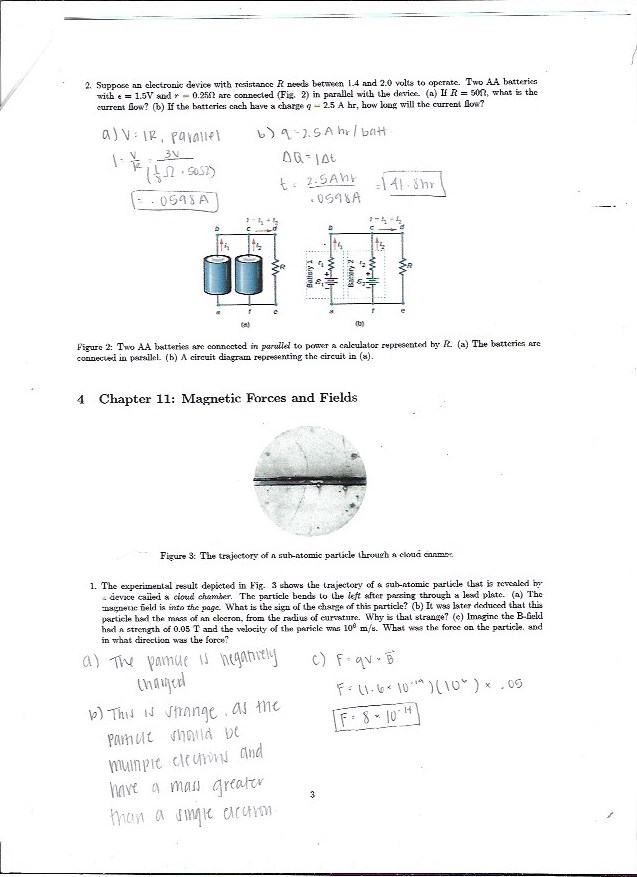 2. Suppose an electronic device with resistance R needs between 1.4 and 2.0 volts to operate. Two AA batteries
with ϵ = 1.5V and r = 0.25Ω are connected (Fig. 2) in parallel with the device. (a) If R = 50Ω, what is the
current flow? (b) If the batteries each have a charge q = 2.5 A hr, how long will the current flow?
a) V = IR, parallel
I = V/R = 3V / (1/8 Ω + 50Ω)
= .0598A
b) q = 2.5 A hr/batt
ΔQ = IΔt
t = 2.5Ahr / .0598A = 41.8hr
I = I₁ + I₂
b c d
I₁ I₂
R
a f e
(a)
I = I₁ + I₂
b c d
I₁ I₂
Battery 1 Battery 2
R
a f e
(b)
Figure 2: Two AA batteries are connected in parallel to power a calculator represented by R. (a) The batteries are
connected in parallel. (b) A circuit diagram representing the circuit in (a).
4 Chapter 11: Magnetic Forces and Fields
Figure 3: The trajectory of a sub-atomic particle through a cloud
1. The experimental result depicted in Fig. 3 shows the trajectory of a sub-atomic particle that is revealed by
a device called a cloud chamber. The particle bends to the left after passing through a lead plate. (a) The
magnetic field is into the page. What is the sign of the charge of this particle? (b) It was later deduced that this
particle had the mass of an elecron, from the radius of curvature. Why is that strange? (c) Imagine the B-field
had a strength of 0.05 T and the velocity of the paricle was 10⁶ m/s. What was the force on the particle, and
in what direction was the force?
a) The particle is negatively
charged
b) This is strange, as the
particle should be
multiple electrons and
have a mass greater
than a single electron.
c) F = qv × B
F = (1.6 × 10⁻¹⁹)(10⁶) × .05
F = 8 × 10⁻¹⁴
3